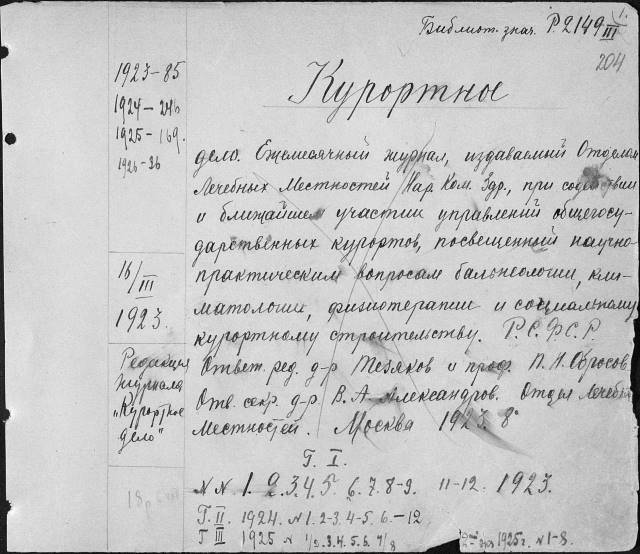 1.
Библиот. знач. Р.2149 III
204
1923-85
1924-246
1925-169.
1926-36
Курортное
дело. Ежемесячный журнал, издаваемый Отделом
Лечебных Местностей Нар. Ком. Здр., при содействии
и ближайшем участии управлений общегосу-
дарственных курортов, посвещенный научно-
практическим вопросам бальнеологии, кли-
матологии, физиотерапии и социальному
курортному строительству. Р.С.Ф.С.Р.
16/III
1923.
Редакция
журнала
"Курортное
дело"
Ответ. ред. д-р Тезяков и проф. П. Н. Обросов
Отв. секр. д-р В. А. Александров. Отдел Лечебн
Местностей. Москва 1923. 8°
Г. I.
N N 1. 2. 3. 4. 5. 6. 7. 8-9. 11-12. 1923.
Г. II. 1924. N 1. 2-3. 4-5. 6.-12
Г III 1925 N 1/2. 3. 4. 5. 6. 7/8
1925г. N 1-8.